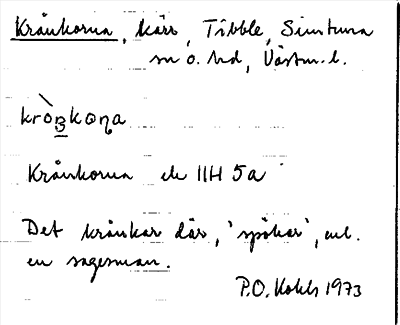 Krånkorna, kärr, Tibble, Simtuna
sn o. hd, Västm. l.
kròŋkoṇa
Krånkorna ek 11H 5a
Det krånkar där, 'spökar', enl.
en sagesman.
P.O. Kohls 1973